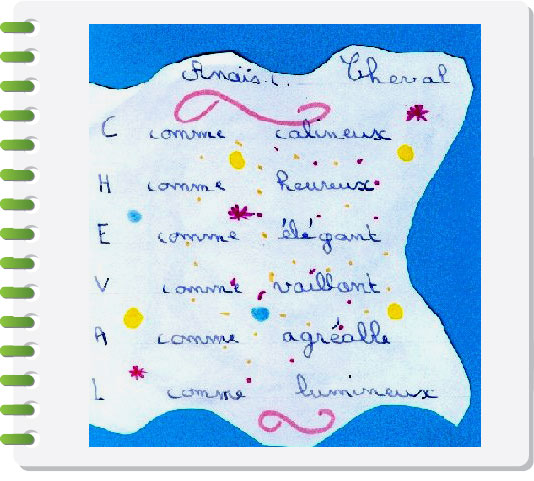 Anaïs.C. Cheval
C comme calineux
H comme heureux
E comme élégant
V comme vaillant
A comme agréable
L comme lumineux